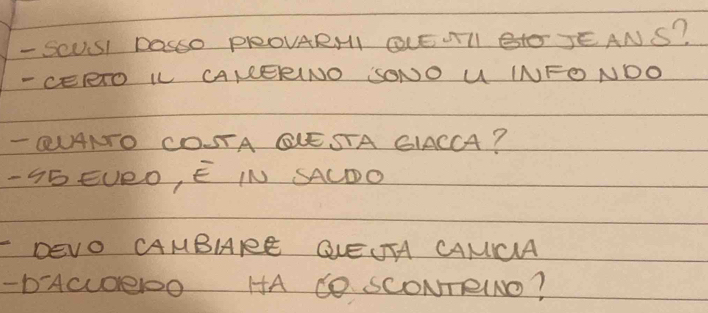 - SCUSI POSSO PROVARMI QUESTII JEANS?
- CERTO IL CAMERINO SONO LI INFONDO
- QUANTO COSTA QUESTA GIACCA?
- 45 EURO, È IN SALDO
- DEVO CAMBIARE QUESTA CAMICIA
- D'ACCORDO HA LO SCONTRINO?